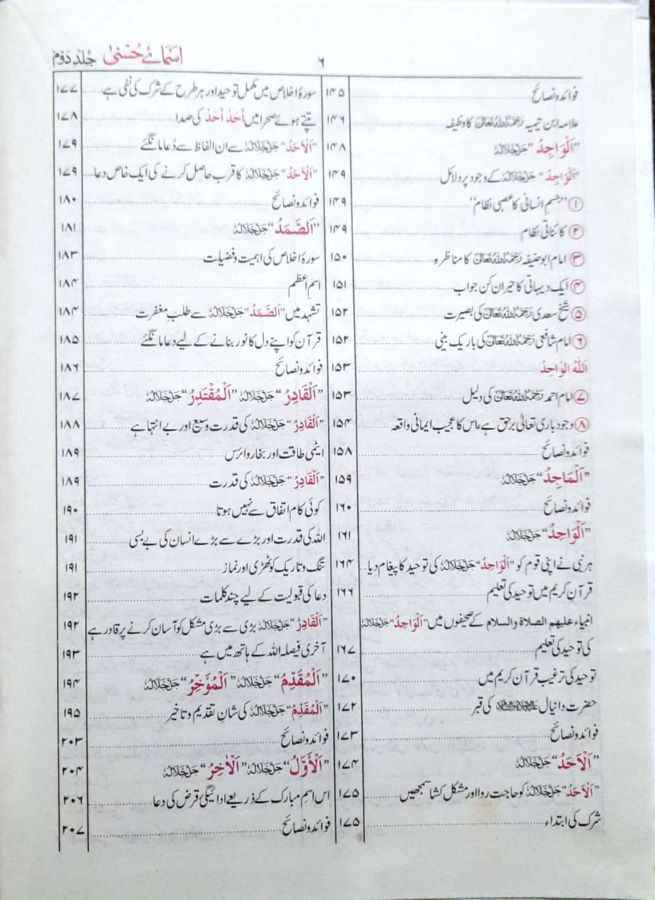 ۶
اسمائے حُسنیٰ جلد دوم
فوائد و نصائح ۱۴۵
علامہ ابن تیمیہ رَحِمَهُ اللهُ تَعَالیٰ کا وظیفہ ۱۴۶
"اَلْوَاجِدُ" جَلَّ جَلَالُهٗ ۱۴۸
"اَلْوَاجِدُ" جَلَّ جَلَالُهٗ کے وجود پر دلائل ۱۴۹
① "جسم انسانی کا عصبی نظام" ۱۴۹
② کائناتی نظام ۱۴۹
③ امام ابو حنیفہ رَحِمَهُ اللهُ تَعَالیٰ کا مناظرہ ۱۵۰
④ ایک دیہاتی کا حیران کن جواب ۱۵۱
⑤ شیخ سعدی رَحِمَهُ اللهُ تَعَالیٰ کی بصیرت ۱۵۲
⑥ امام شافعی رَحِمَهُ اللهُ تَعَالیٰ کی باریک بینی ۱۵۲
اَللهُ الوَاجِدُ ۱۵۳
⑦ امام احمد رَحِمَهُ اللهُ تَعَالیٰ کی دلیل ۱۵۳
⑧ وجود باری تعالیٰ برحق ہے، اس کا عجیب ایمانی واقعہ ۱۵۴
فوائد و نصائح ۱۵۸
"اَلْمَاجِدُ" جَلَّ جَلَالُهٗ ۱۵۹
فوائد و نصائح ۱۶۰
"اَلْوَاحِدُ" جَلَّ جَلَالُهٗ ۱۶۱
ہر نبی نے اپنی قوم کو "اَلْوَاحِدُ" جَلَّ جَلَالُهٗ کی توحید کا پیغام دیا ۱۶۴
قرآن کریم میں توحید کی تعلیم ۱۶۶
انبیاء علیهم الصلاة والسلام کے صحیفوں میں "اَلْوَاحِدُ" جَلَّ جَلَالُهٗ
کی توحید کی تعلیم ۱۶۷
توحید کی ترغیب قرآن کریم میں ۱۷۰
حضرت دانیال کی قبر ۱۷۲
فوائد و نصائح ۱۷۳
"اَلْاَحَدُ" جَلَّ جَلَالُهٗ ۱۷۴
"اَلْاَحَدُ" جَلَّ جَلَالُهٗ کو حاجت روا اور مشکل کشا سمجھیں ۱۷۵
شرک کی ابتداء ۱۷۵
سورۂ اخلاص میں مکمل توحید اور ہر طرح کے شرک کی نفی ہے ۱۷۷
تپتے ہوئے صحرا میں اَحَدْ اَحَدْ کی صدا ۱۷۸
"اَلْاَحَدُ" جَلَّ جَلَالُهٗ سے ان الفاظ سے دُعا مانگئے ۱۷۹
"اَلْاَحَدُ" جَلَّ جَلَالُهٗ کا قرب حاصل کرنے کی ایک خاص دعا ۱۷۹
فوائد و نصائح ۱۸۰
"اَلصَّمَدُ" جَلَّ جَلَالُهٗ ۱۸۱
سورۂ اخلاص کی اہمیت و فضیلت ۱۸۳
اسم اعظم ۱۸۴
تشہد میں "اَلصَّمَدُ" جَلَّ جَلَالُهٗ سے طلب مغفرت ۱۸۴
قرآن کو اپنے دل کا نور بنانے کے لیے دعا مانگئے ۱۸۵
فوائد و نصائح ۱۸۶
"اَلْقَادِرُ" جَلَّ جَلَالُهٗ "اَلْمُقْتَدِرُ" جَلَّ جَلَالُهٗ ۱۸۷
"اَلْقَادِرُ" جَلَّ جَلَالُهٗ کی قدرت وسیع اور بے انتہا ہے ۱۸۸
ایٹمی طاقت اور بخار وائرس ۱۸۹
"اَلْقَادِرُ" جَلَّ جَلَالُهٗ کی قدرت ۱۸۹
کوئی کام اتفاق سے نہیں ہوتا ۱۹۰
اللہ کی قدرت اور بڑے سے بڑے انسان کی بے بسی ۱۹۱
تنگ و تاریک کوٹھڑی اور نماز ۱۹۱
دعا کی قبولیت کے لیے چند کلمات ۱۹۲
"اَلْقَادِرُ" جَلَّ جَلَالُهٗ بڑی سے بڑی مشکل کو آسان کرنے پر قادر ہے ۱۹۲
آخری فیصلہ اللہ کے ہاتھ میں ہے ۱۹۳
"اَلْمُقَدِّمُ" جَلَّ جَلَالُهٗ "اَلْمُؤَخِّرُ" جَلَّ جَلَالُهٗ ۱۹۴
"اَلْمُقَدِّمُ" جَلَّ جَلَالُهٗ کی شان تقدیم و تاخیر ۱۹۵
فوائد و نصائح ۲۰۳
"اَلْاَوَّلُ" جَلَّ جَلَالُهٗ "اَلْاٰخِرُ" جَلَّ جَلَالُهٗ ۲۰۴
اس اسمِ مبارک کے ذریعے ادائیگی قرض کی دعا ۲۰۶
فوائد و نصائح ۲۰۷